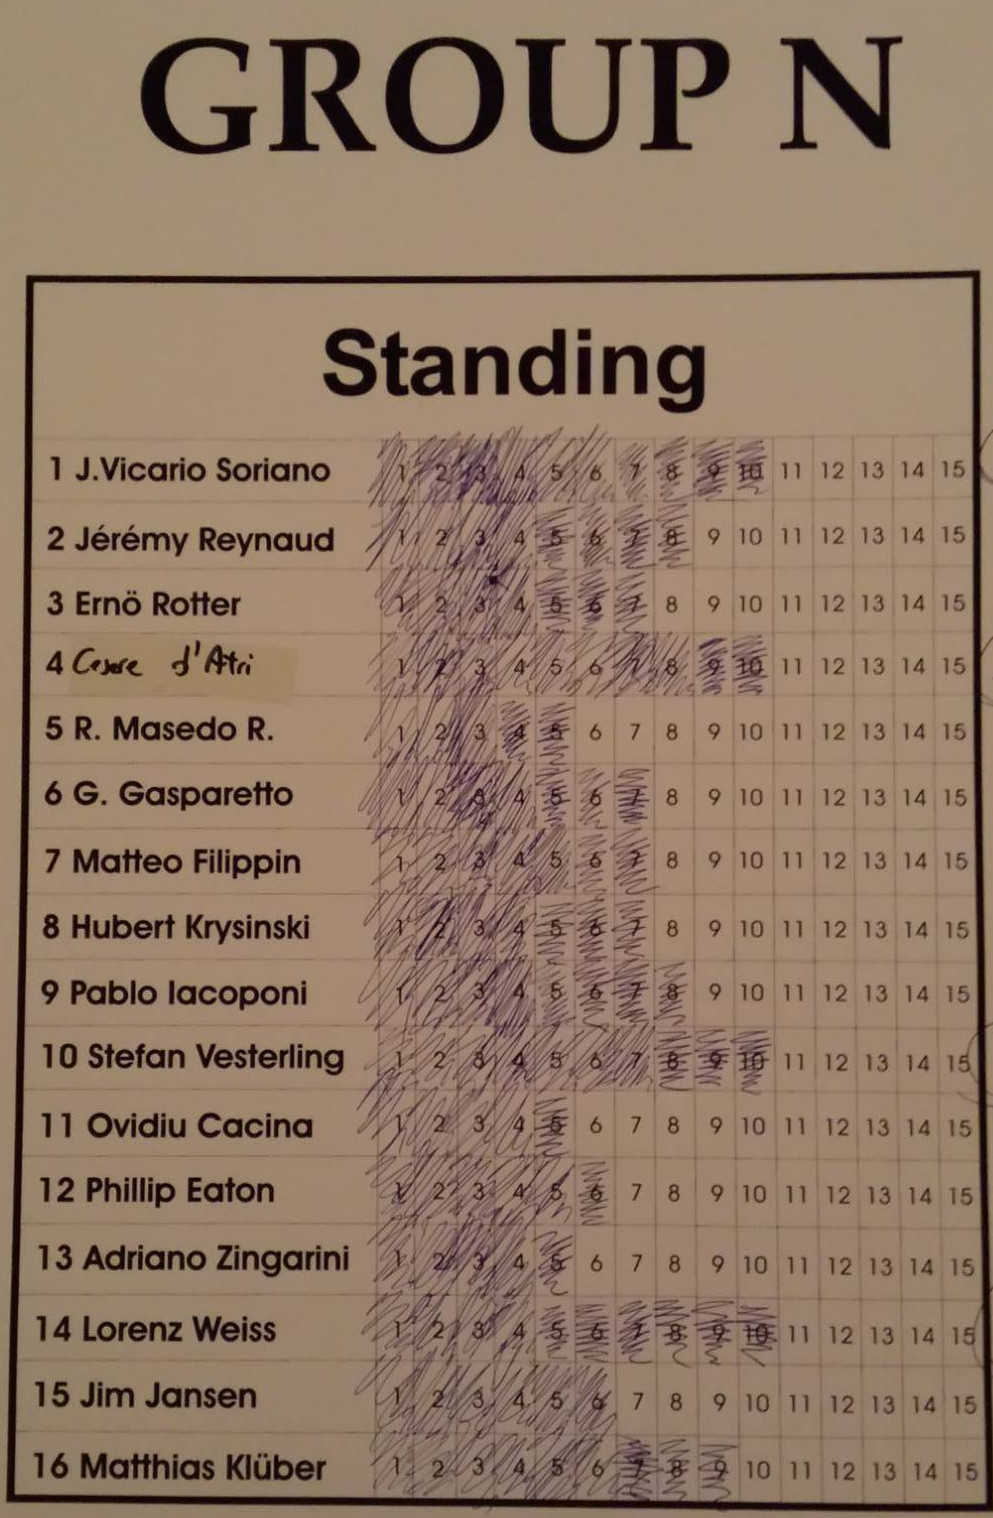 GROUP N
Standing
1 J.Vicario Soriano 1 2 3 4 5 6 7 8 9 10 11 12 13 14 15
2 Jérémy Reynaud 1 2 3 4 5 6 7 8 9 10 11 12 13 14 15
3 Ernö Rotter 1 2 3 4 5 6 7 8 9 10 11 12 13 14 15
4 Cesare d'Atri 1 2 3 4 5 6 7 8 9 10 11 12 13 14 15
5 R. Masedo R. 1 2 3 4 5 6 7 8 9 10 11 12 13 14 15
6 G. Gasparetto 1 2 3 4 5 6 7 8 9 10 11 12 13 14 15
7 Matteo Filippin 1 2 3 4 5 6 7 8 9 10 11 12 13 14 15
8 Hubert Krysinski 1 2 3 4 5 6 7 8 9 10 11 12 13 14 15
9 Pablo Iacoponi 1 2 3 4 5 6 7 8 9 10 11 12 13 14 15
10 Stefan Vesterling 1 2 3 4 5 6 7 8 9 10 11 12 13 14 15
11 Ovidiu Cacina 1 2 3 4 5 6 7 8 9 10 11 12 13 14 15
12 Phillip Eaton 1 2 3 4 5 6 7 8 9 10 11 12 13 14 15
13 Adriano Zingarini 1 2 3 4 5 6 7 8 9 10 11 12 13 14 15
14 Lorenz Weiss 1 2 3 4 5 6 7 8 9 10 11 12 13 14 15
15 Jim Jansen 1 2 3 4 5 6 7 8 9 10 11 12 13 14 15
16 Matthias Klüber 1 2 3 4 5 6 7 8 9 10 11 12 13 14 15